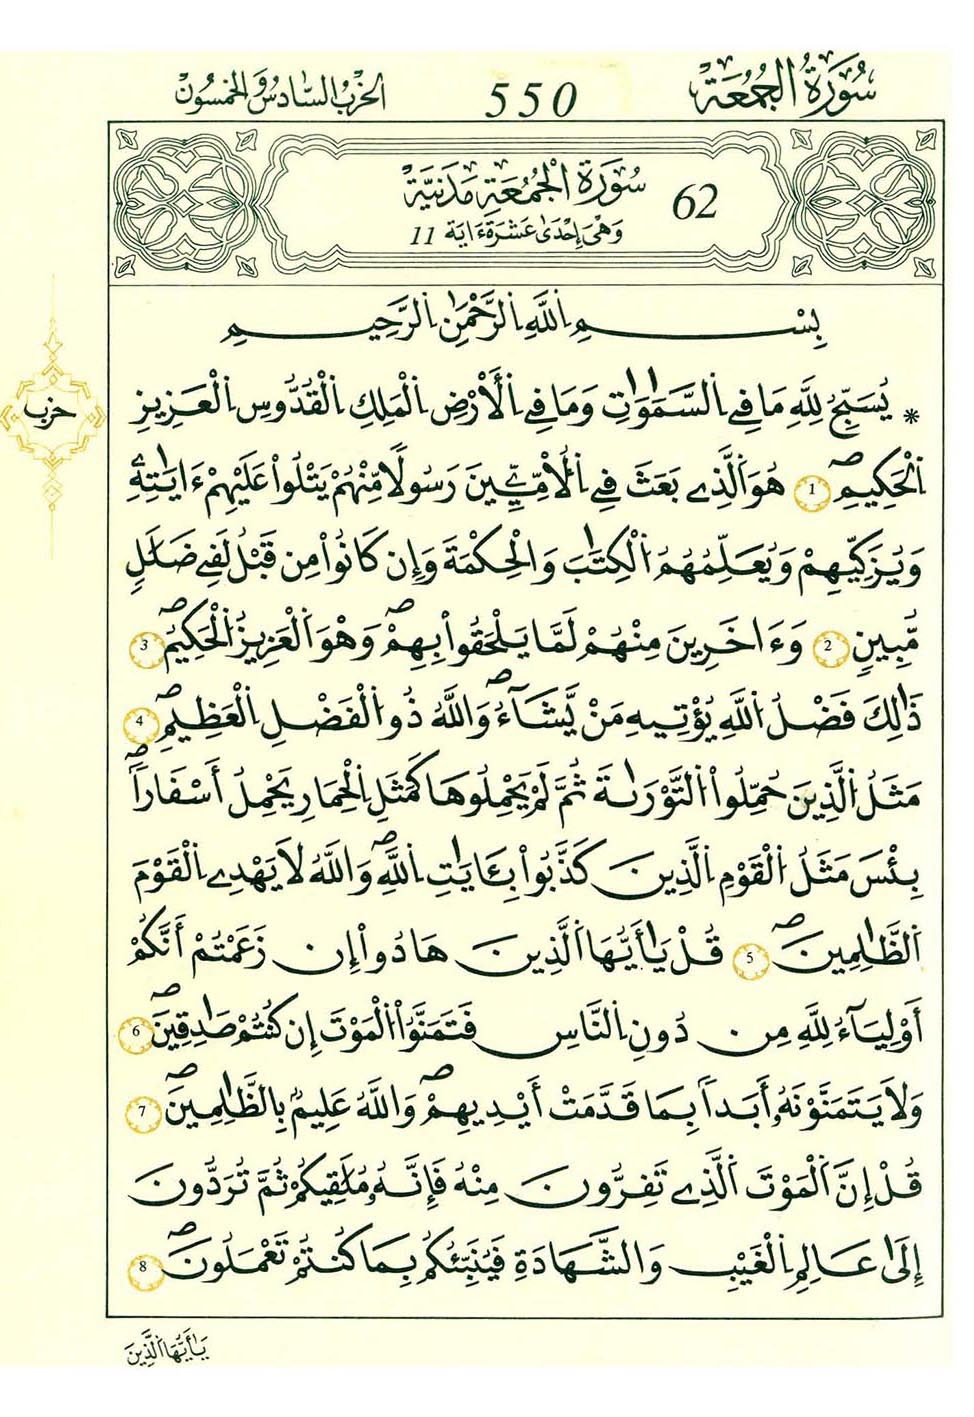 سُورَةُ الْجُمُعَةِ 550 الحِزْبُ السَّادِسُ وَالخَمْسُونَ
62 سُورَةُ الْجُمُعَةِ مَدَنِيَّة
وَهْيَ إِحْدَىٰ عَشْرَةَ ءَايَة 11
بِسْمِ اِللَّهِ اِلرَّحْمَٰنِ اِلرَّحِيمِ
* يُسَبِّحُ لِلهِ مَا فِے اِلسَّمَٰوَٰتِ وَمَا فِے اِلَارْضِ اِلْمَلِكِ اِلْقُدُّوسِ اِلْعَزِيزِ
حزب
اِلْحَكِيمِۖ 1 هُوَ اَلذِے بَعَثَ فِے اِلُامِّيِّينَ رَسُولاً مِّنْهُمْ يَتْلُواْ عَلَيْهِمْ ءَايَٰتِهِۦ
وَيُزَكِّيهِمْ وَيُعَلِّمُهُمُ اُلْكِتَٰبَ وَالْحِكْمَةَ وَإِن كَانُواْ مِن قَبْلُ لَفِے ضَلَٰلٍ
مُّبِينٍ 2 وَءَاخَرِينَ مِنْهُمْ لَمَّا يَلْحَقُواْ بِهِمْۖ وَهْوَ اَلْعَزِيزُ اُلْحَكِيمُۖ 3
ذَٰلِكَ فَضْلُ اُللَّهِ يُؤْتِيهِ مَنْ يَّشَآءُۖ وَاللَّهُ ذُو اُلْفَضْلِ اِلْعَظِيمِۖ 4
مَثَلُ اُلذِينَ حُمِّلُواْ اُلتَّوْرَىٰةَ ثُمَّ لَمْ يَحْمِلُوهَا كَمَثَلِ اِلْحِمَارِ يَحْمِلُ أَسْفَاراَۖ
بِئْسَ مَثَلُ اُلْقَوْمِ اِلذِينَ كَذَّبُواْ بِـَٔايَٰتِ اِللَّهِۖ وَاللَّهُ لَا يَهْدِے اِلْقَوْمَ
اَلظَّٰلِمِينَۖ 5 قُلْ يَٰأَيُّهَا اَلذِينَ هَادُواْ إِن زَعَمْتُمْ أَنَّكُمْ
أَوْلِيَآءُ لِلهِ مِن دُونِ اِلنَّاسِ فَتَمَنَّوُاْ اُلْمَوْتَ إِن كُنتُمْ صَٰدِقِينَۖ 6
وَلَا يَتَمَنَّوْنَهُۥ أَبَداَۢ بِمَا قَدَّمَتْ أَيْدِيهِمْۖ وَاللَّهُ عَلِيمُۢ بِالظَّٰلِمِينَۖ 7
قُلِ اِنَّ اَلْمَوْتَ اَلذِے تَفِرُّونَ مِنْهُ فَإِنَّهُۥ مُلَٰقِيكُمْ ثُمَّ تُرَدُّونَ
إِلَىٰ عَٰلِمِ اِلْغَيْبِ وَالشَّهَٰدَةِ فَيُنَبِّئُكُم بِمَا كُنتُمْ تَعْمَلُونَۖ 8
يَٰأَيُّهَا اَلذِينَ